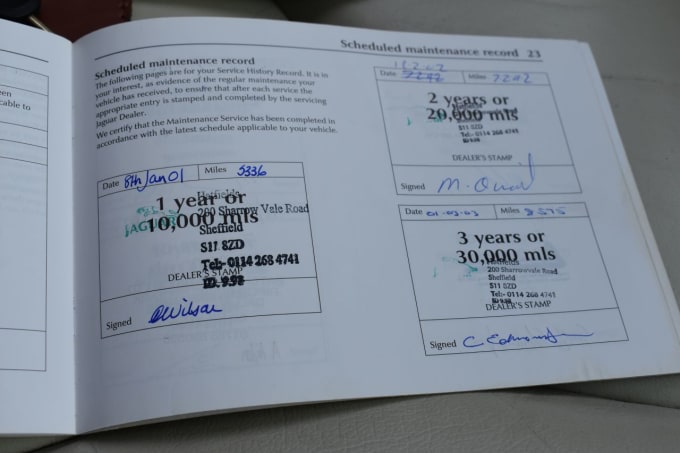 en
cable to
Scheduled maintenance record
The following pages are for your Service History Record. It is in
your interest, as evidence of the regular maintenance your
vehicle has received, to ensure that after each service the
appropriate entry is stamped and completed by the servicing
Jaguar Dealer.
We certify that the Maintenance Service has been completed in
accordance with the latest schedule applicable to your vehicle.
Date 8th Jan 01 Miles 5336
1 year or
10,000 mls
JAGUAR
Hatfields
200 Sharrow Vale Road
Sheffield
S11 8ZD
Tel:- 0114 268 4741
DEALER'S STAMP
Signed
Scheduled maintenance record 23
Date Miles 7242
2 years or
20,000 mls
S11 8ZD
Tel:- 0114 268 4741
DEALER'S STAMP
Signed
Date 01-03-03 Miles 8575
3 years or
30,000 mls
Hatfields
200 Sharrowvale Road
Sheffield
S11 8ZD
Tel:- 0114 268 4741
DEALER'S STAMP
Signed